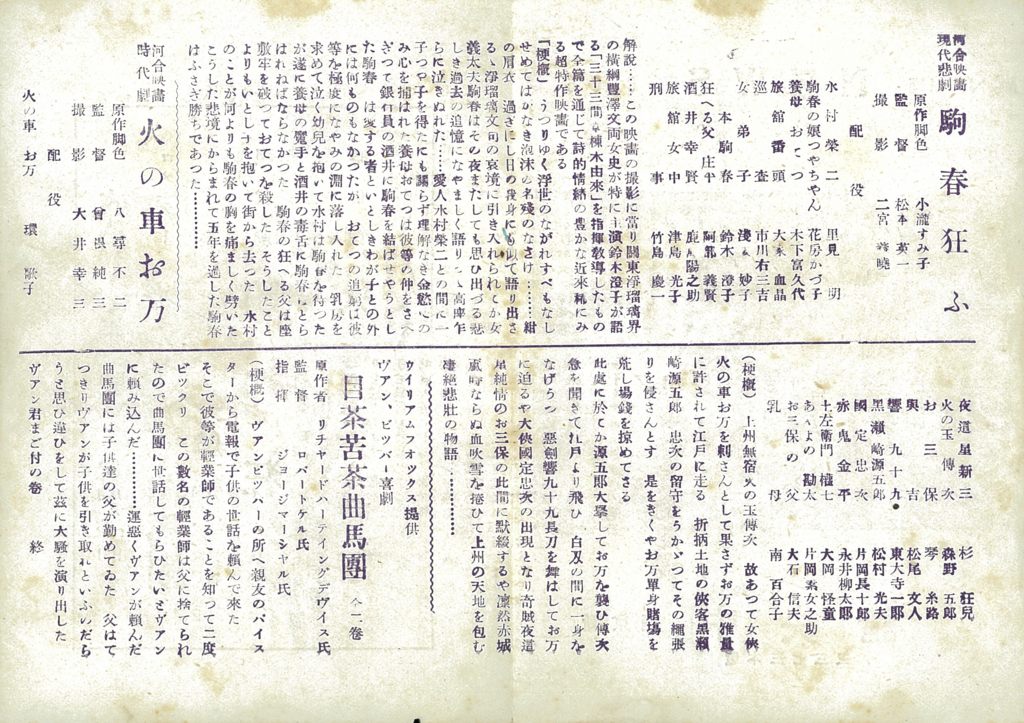 河合映畫
現代悲劇
駒春狂ふ
原作脚色 小瀧すみ子
監督 松本英一
撮影 二宮
配役
水村榮二 里見明
駒春の娘つやちやん 花房かづ子
養母おてつ 木下富久代
旅館番頭 大 血晶
巡査 市川右三吉
女弟子 淺 妙子
本駒春 鈴木澄子
狂へる父庄平 阿部義賢
酒井幸 鹿 陽之助
旅館女中 津島光子
刑事 竹島慶一
解說……この映畫の撮影に當り關東淨瑠璃界
の橫綱豐澤文両女史が特に主演鈴木澄子が語
る「三十三間 棟木由來」を指揮敎導したもの
で全篇を通じて詩的情緖の豊かな近來稀にみ
る超特作映畫である
「梗槪」うつりゆく浮世のながれすべもなし
せめてはかなき泡沫の名殘のなさけ……紺
の肩衣 過ぎにし日の我身にも似て語り出さ
るゝ淨瑠璃文句の哀境に引き入れられてか女
義太夫駒春はその夜またしても思ひ出づる悲
しき過去の追憶になやましく語りつゝ高座乍
らに泣きぬれた……愛人水村榮二との間に一
子つや子を得たにも關らず理解なき金慾への
み心を捕はれた養母おてつは彼等の仲をさへ
ぎつて銀行員の酒井に駒春を結ばせやうとし
た駒春 は愛する者といとしきわが子との外
には何ものもなかつたが おてつの追窮は彼
等を極度になやみの淵に落し入れた 乳房を
求めて泣く幼兒を抱いて水村は駒春を待つた
が遂に養母の魔手と酒井の毒舌に駒春はとら
はれねばならなかつた 駒春の狂へる父は座
敷牢を破つておてつを殺した そうしたこと
よりもいとし子を抱いて街から去つた 水村
のことが何よりも駒春の胸を痛ましく劈いた
こうした悲境にからまれて五年を過した駒春
はふさぎ勝ちであつた……
河合映畫
時代劇
火の車お万
原作脚色 八尋不二
監督 曾根純三
撮影 大井幸三
配役
火の車お万 環歌子
夜道星新三 杉狂兒
火の玉傳次 森野五郎
お三保 琴糸路
與吉 松尾文人
響九十九 東大寺一郎
黑瀨崎源五郎 松村光夫
國定忠次 片岡長十郎
赤鬼金平 永井柳太郎
土左衛門 七 大岡怪童
あゝよの勘太 片岡 女之助
お三保の父 大石信夫
乳母 南百合子
(梗槪) 上州無宿火の玉傳次 故あつて女俠
火の車お万を刺さんとして果さずお万の雅量
に許されて江戶に走る 折柄土地の俠客黑瀨
崎源五郎 忠次の留守をうかゞつてその繩張
りを侵さんとす 是をきくやお万單身賭場を
荒し場錢を掠めてさる
此處に於てか源五郎大擧してお万を襲ひ傳次
急を聞きて江戶より飛ひ 白刄の間に一身を
なげうつ 惡劍響九十九長刀を舞はしてお万
に迫るや大俠國定忠次の出現となり奇賊夜道
星純情のお三保の此間に默綴するや凛然赤城
颪時ならぬ血吹雪を捲ひて上州の天地を包む
凄絕悲壯の物語……
ウイリアムフオツクス提供
ヴアン、ビツバー喜劇
目茶苦茶曲馬團 全二卷
原作者 リチヤードハーデイングデヴイス氏
監督 ロバートケル氏
指揮 ジヨージマーシヤル氏
(梗槪) ヴアンビツバーの所へ親友のバイス
ターから電報で子供の世話を賴んで來た
そこで彼等が輕業師であることを知つて二度
ビツクリ この數名の輕業師は父に捨てられ
たので曲馬團に世話してもらひたいとヴアン
に賴み込んだ……運惡くヴアンが賴んだ
曲馬團には子供達の父が勤めてゐた 父はて
つきりヴアンが子供を引き取れといふのだら
うと思ひ違ひをして茲に大騷を演り出した
ヴアン君まご付の卷 終